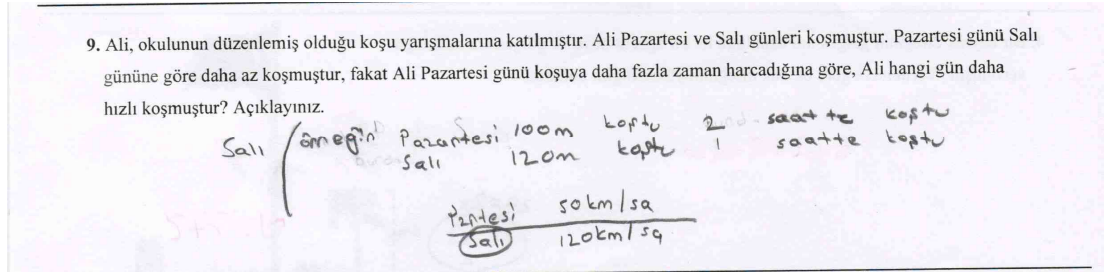 9. Ali, okulunun düzenlemiş olduğu koşu yarışmalarına katılmıştır. Ali Pazartesi ve Salı günleri koşmuştur. Pazartesi günü Salı
gününe göre daha az koşmuştur, fakat Ali Pazartesi günü koşuya daha fazla zaman harcadığına göre, Ali hangi gün daha
hızlı koşmuştur? Açıklayınız.
Salı örneğin Pazartesi 100m koştu 2 saatte koştu
Salı 120m koştu 1 saatte koştu
Pzntesi 50km/sa
Salı 120km/sa